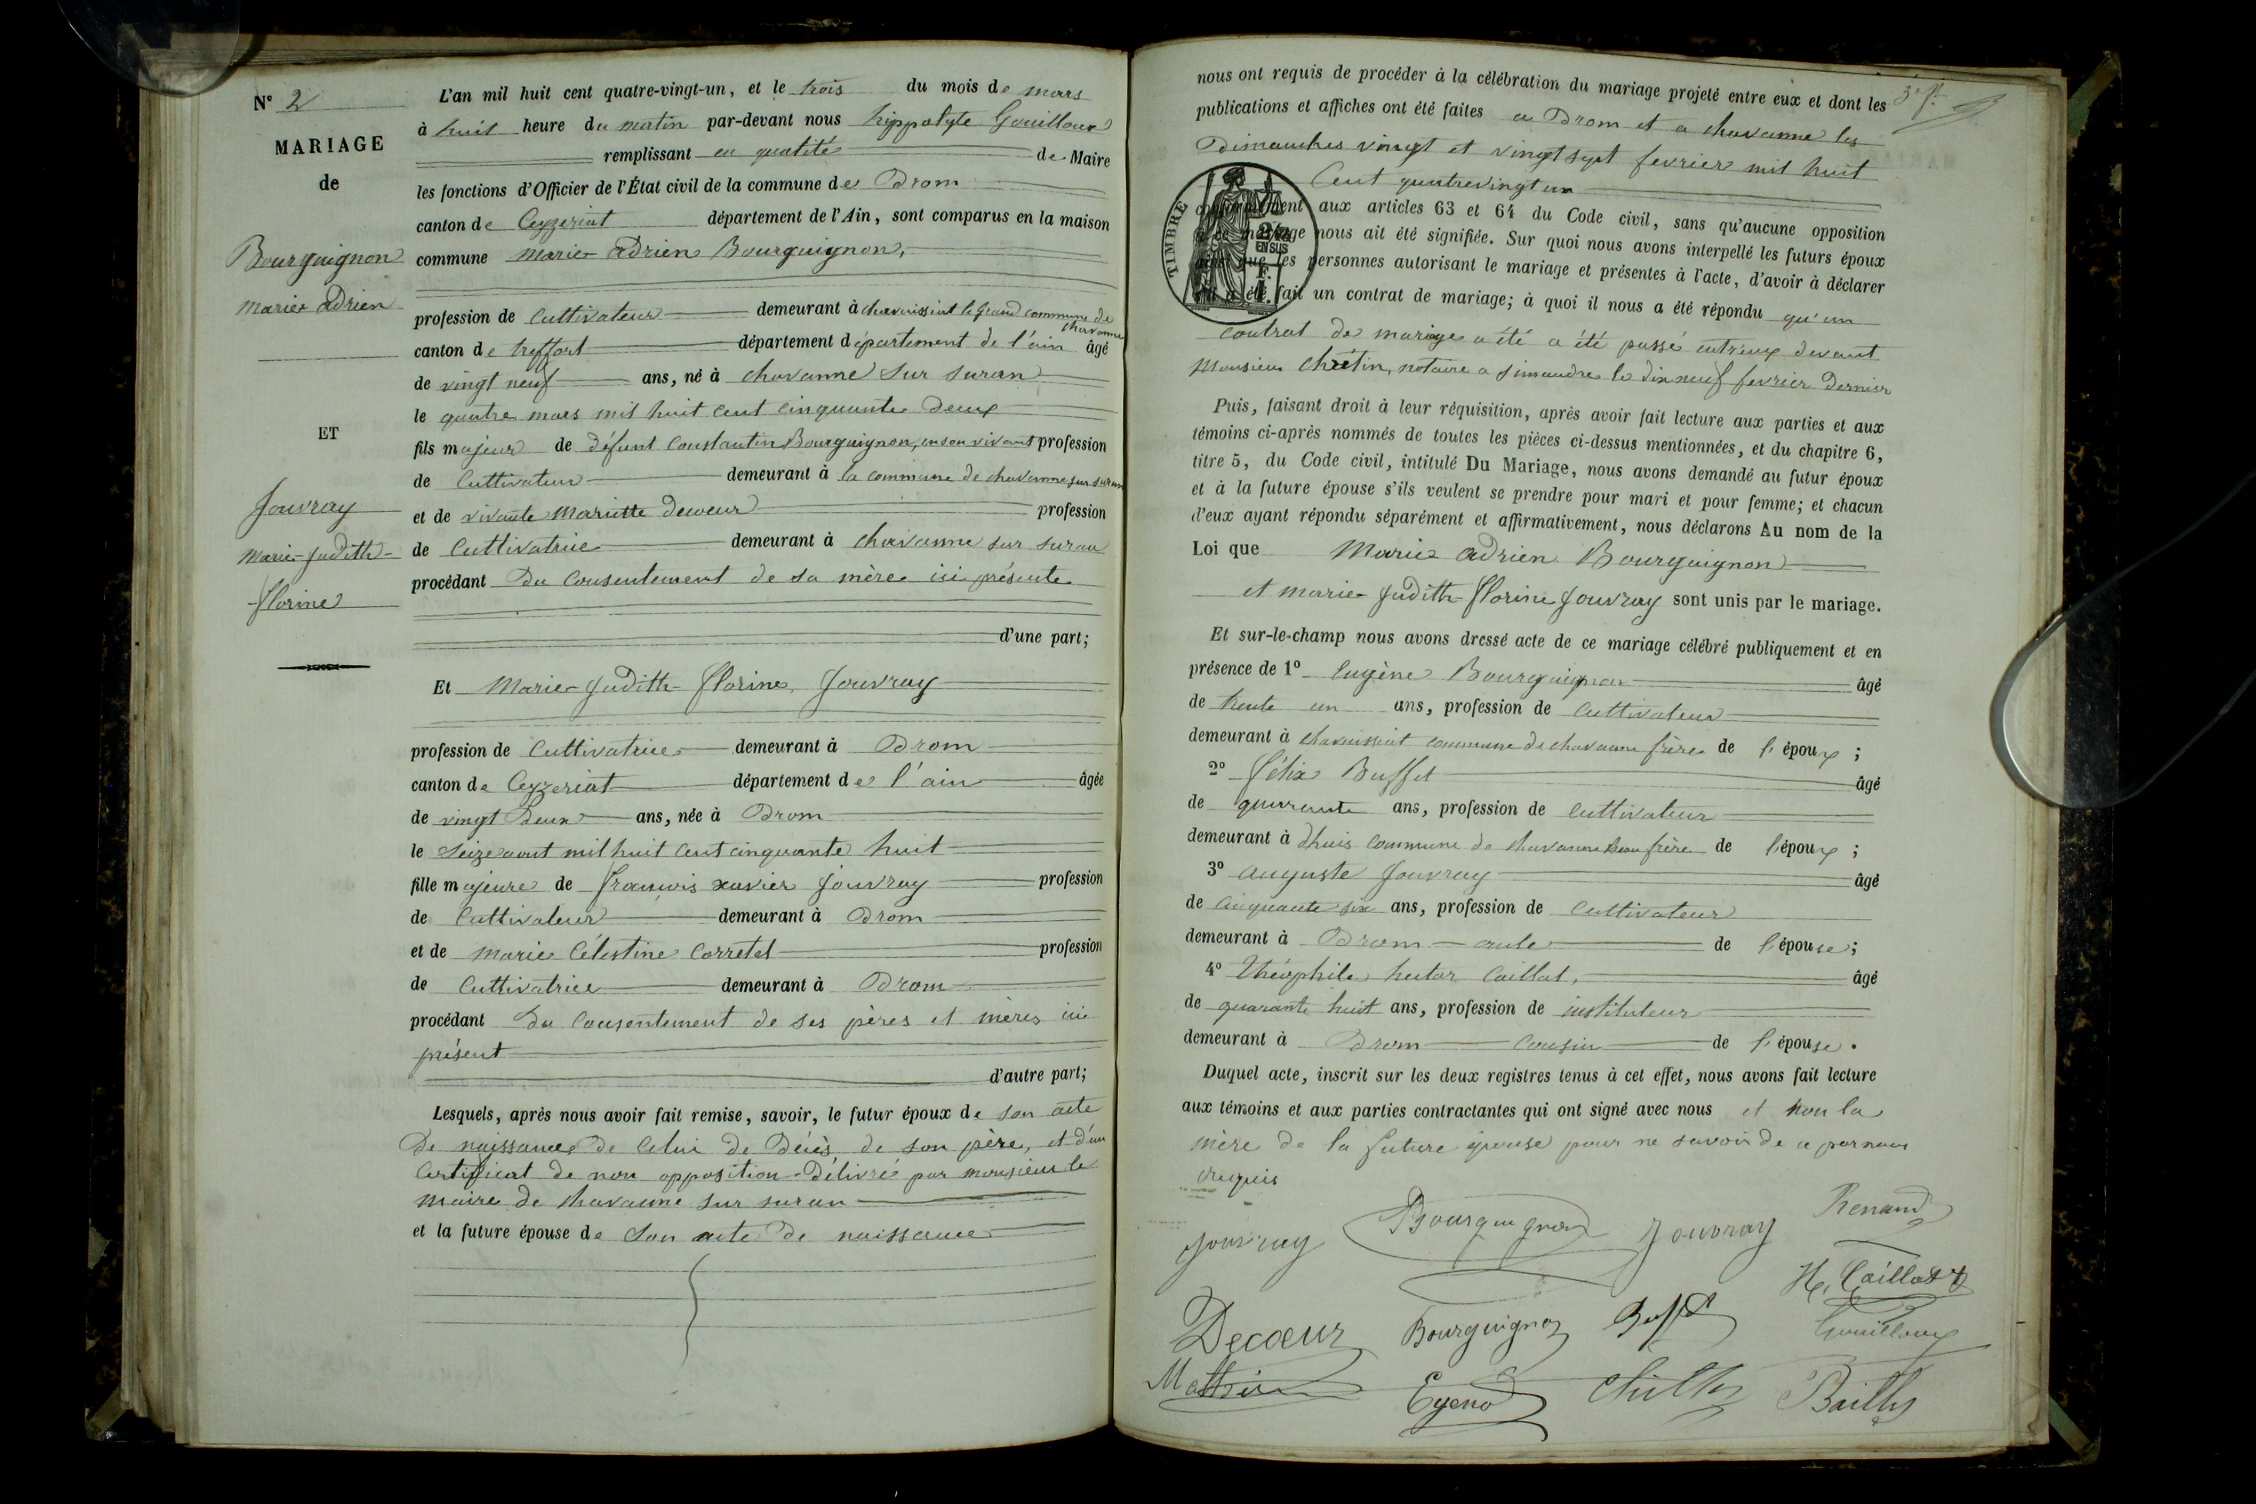 N° 2
MARIAGE
de
Bourguignon
Marie Adrien
ET
Jouvray
Marie Judith
Florine
L'an mil huit cent quatre-vingt-un, et le trois du mois de mars
à huit heure du matin par-devant nous hyppolyte Gouilloux
remplissant en qualité de Maire
les fonctions d'Officier de l'État civil de la commune de Drom
canton de Ceyzeriat département de l'Ain, sont comparus en la maison
commune Marie Adrien Bourguignon,
profession de Cultivateur demeurant à chavuissiat le Grand commune de
chavanne
canton de treffort département département de l'ain âgé
de vingt neuf ans, né à chavanne sur suran
le quatre mars mil huit cent cinquante deux
fils majeur de défunt Constantin Bourguignon, en son vivant profession
de Cultivateur demeurant à la commune de chavanne sur suran
et de vivante Mariette Decoeur profession
de Cultivatrice demeurant à chavanne sur suran
procédant Du Consentement de sa mère ici présente
d'une part;
Et Marie Judith Florine Jouvray
profession de Cultivatrice demeurant à Drom
canton de Ceyzeriat département de l'ain âgée
de vingt Deux ans, née à Drom
le Seize aout mil huit Cent cinquante huit
fille majeure de François xavier Jouvray profession
de Cultivateur demeurant à Drom
et de Marie Célestine Corretel profession
de Cultivatrice demeurant à Drom
procédant Du Consentement de ses pères et mères ici
présent
d'autre part;
Lesquels, après nous avoir fait remise, savoir, le futur époux de son acte
De naissance De Celui de Décès, de son père, et d'un
Certificat de non opposition Délivré par monsieur le
Maire de Chavanne sur suran
et la future épouse de Son acte De naissance
nous ont requis de procéder à la célébration du mariage projeté entre eux et dont les
publications et affiches ont été faites a Drom et a chavanne les
Dimanches vingt et vingt sept fevrier mil huit
Cent quatrevingt un
TIMBRE
2/10
EN SUS
conformément aux articles 63 et 64 du Code civil, sans qu'aucune opposition
à ce mariage nous ait été signifiée. Sur quoi nous avons interpellé les futurs époux
ainsi que les personnes autorisant le mariage et présentes à l'acte, d'avoir à déclarer
s'il a été fait un contrat de mariage; à quoi il nous a été répondu qu'un
contrat de mariage a été a été passé entr'eux devant
Monsieur Chrétin, notaire a simandre le dix neuf fevrier Dernier
Puis, faisant droit à leur réquisition, après avoir fait lecture aux parties et aux
témoins ci-après nommés de toutes les pièces ci-dessus mentionnées, et du chapitre 6,
titre 5, du Code civil, intitulé Du Mariage, nous avons demandé au futur époux
et à la future épouse s'ils veulent se prendre pour mari et pour femme; et chacun
d'eux ayant répondu séparément et affirmativement, nous déclarons Au nom de la
Loi que Marie Adrien Bourguignon
et marie Judith Florine Jouvray sont unis par le mariage.
Et sur-le-champ nous avons dressé acte de ce mariage célébré publiquement et en
présence de 1° Eugène Bourguignon âgé
de trente un ans, profession de Cultivateur
demeurant à chavuissiat commune de chavanne frère de l'époux;
2° Félix Buffet âgé
de quarante ans, profession de Cultivateur
demeurant à dhuis commune de chavanne beau frère de l'époux;
3° Auguste Jouvray âgé
de cinquante six ans, profession de Cultivateur
demeurant à Drom oncle de l'épouse;
4° Théophile hector Caillat, âgé
de quarante huit ans, profession de instituteur
demeurant à Drom Cousin de l'épouse.
Duquel acte, inscrit sur les deux registres tenus à cet effet, nous avons fait lecture
aux témoins et aux parties contractantes qui ont signé avec nous et non la
mère de la future épouse pour ne savoir de ce par nous
requis
Jouvray Bourguignon Jouvray Renand
H. Caillat
Decoeur Bourguignon Buffet Gouilloux
Mathieu Eyeno Bailly